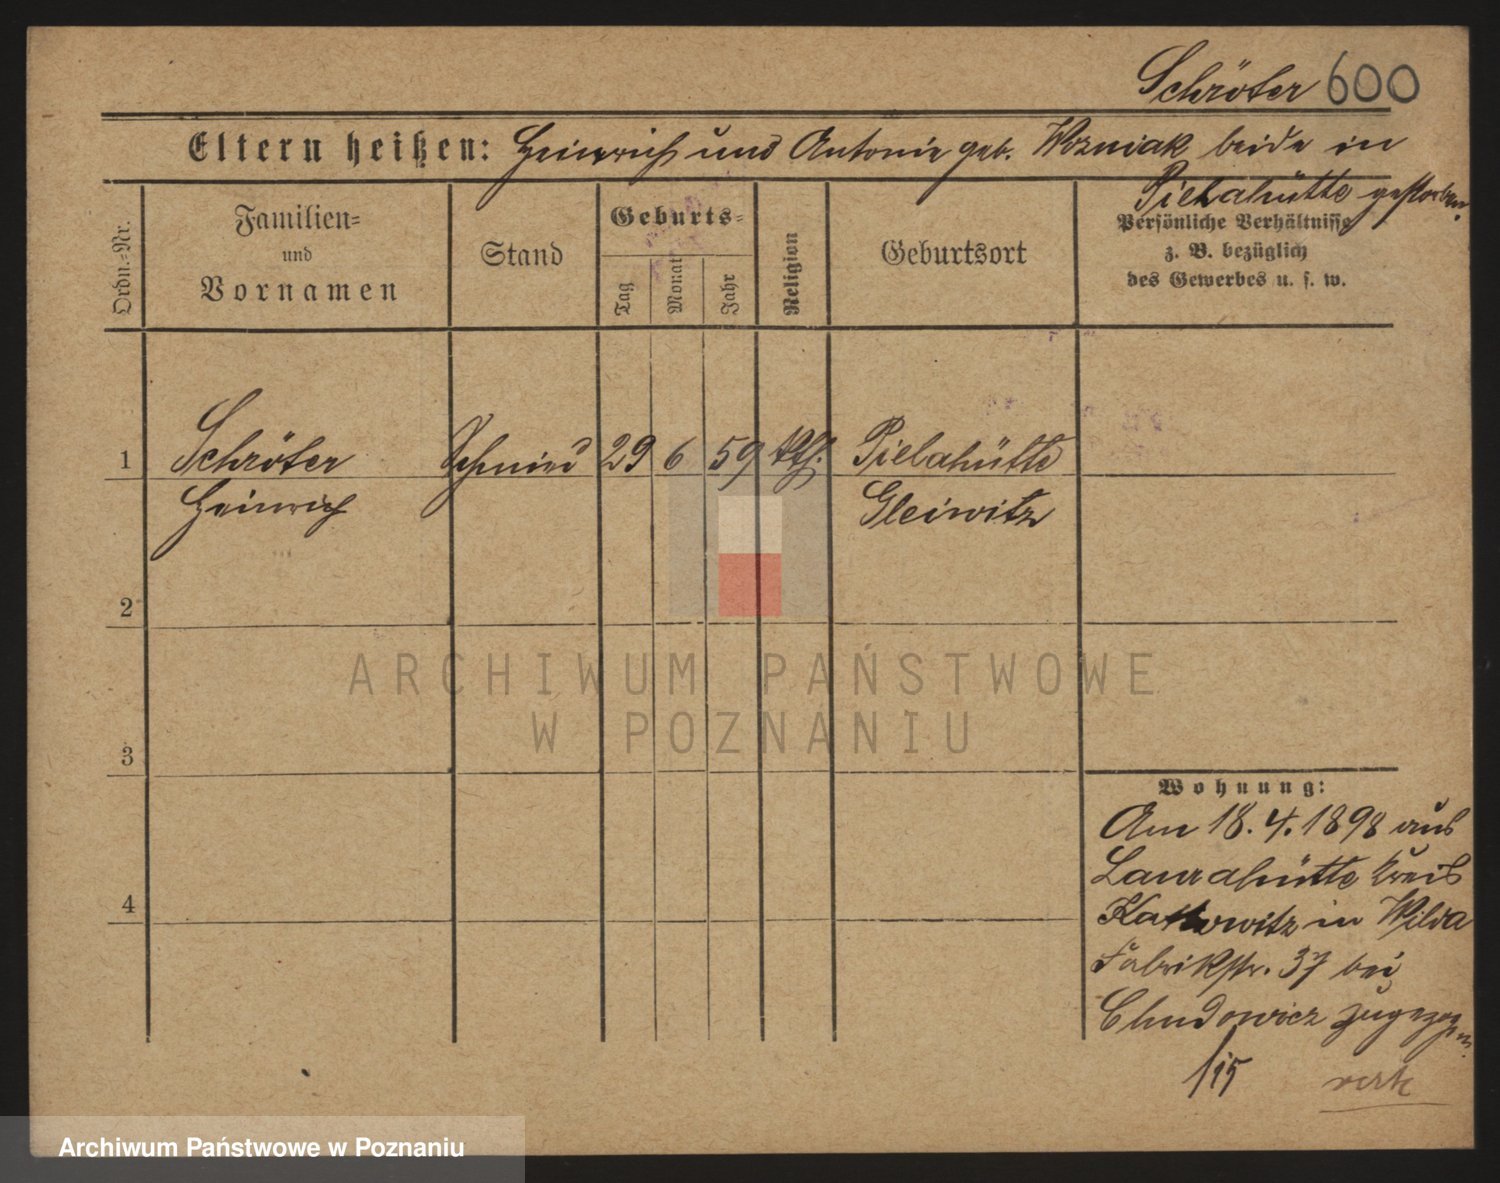 Schröter 600
Eltern heißen: Heinrich und Antonie geb. Wozniak beide in
Pielahütte gestorben.
Ordn.-Nr.
Familien-
und
Vornamen
Stand
Geburts-
Tag
Monat
Jahr
Religion
Geburtsort
Persönliche Verhältnisse
z. B. bezüglich
des Gewerbes u. s. w.
1 Schröter Schmied 29 6 59 kth. Pielahütte
Heinrich Gleiwitz
2
3
4
ARCHIWUM PAŃSTWOWE
W POZNANIU
Wohnung:
Am 18. 4. 1898 aus
Laurahütte Kreis
Kattowitz in Wilda
Fabrikstr. 37 bei
Chudowicz zugezogen.
/15
Archiwum Państwowe w Poznaniu